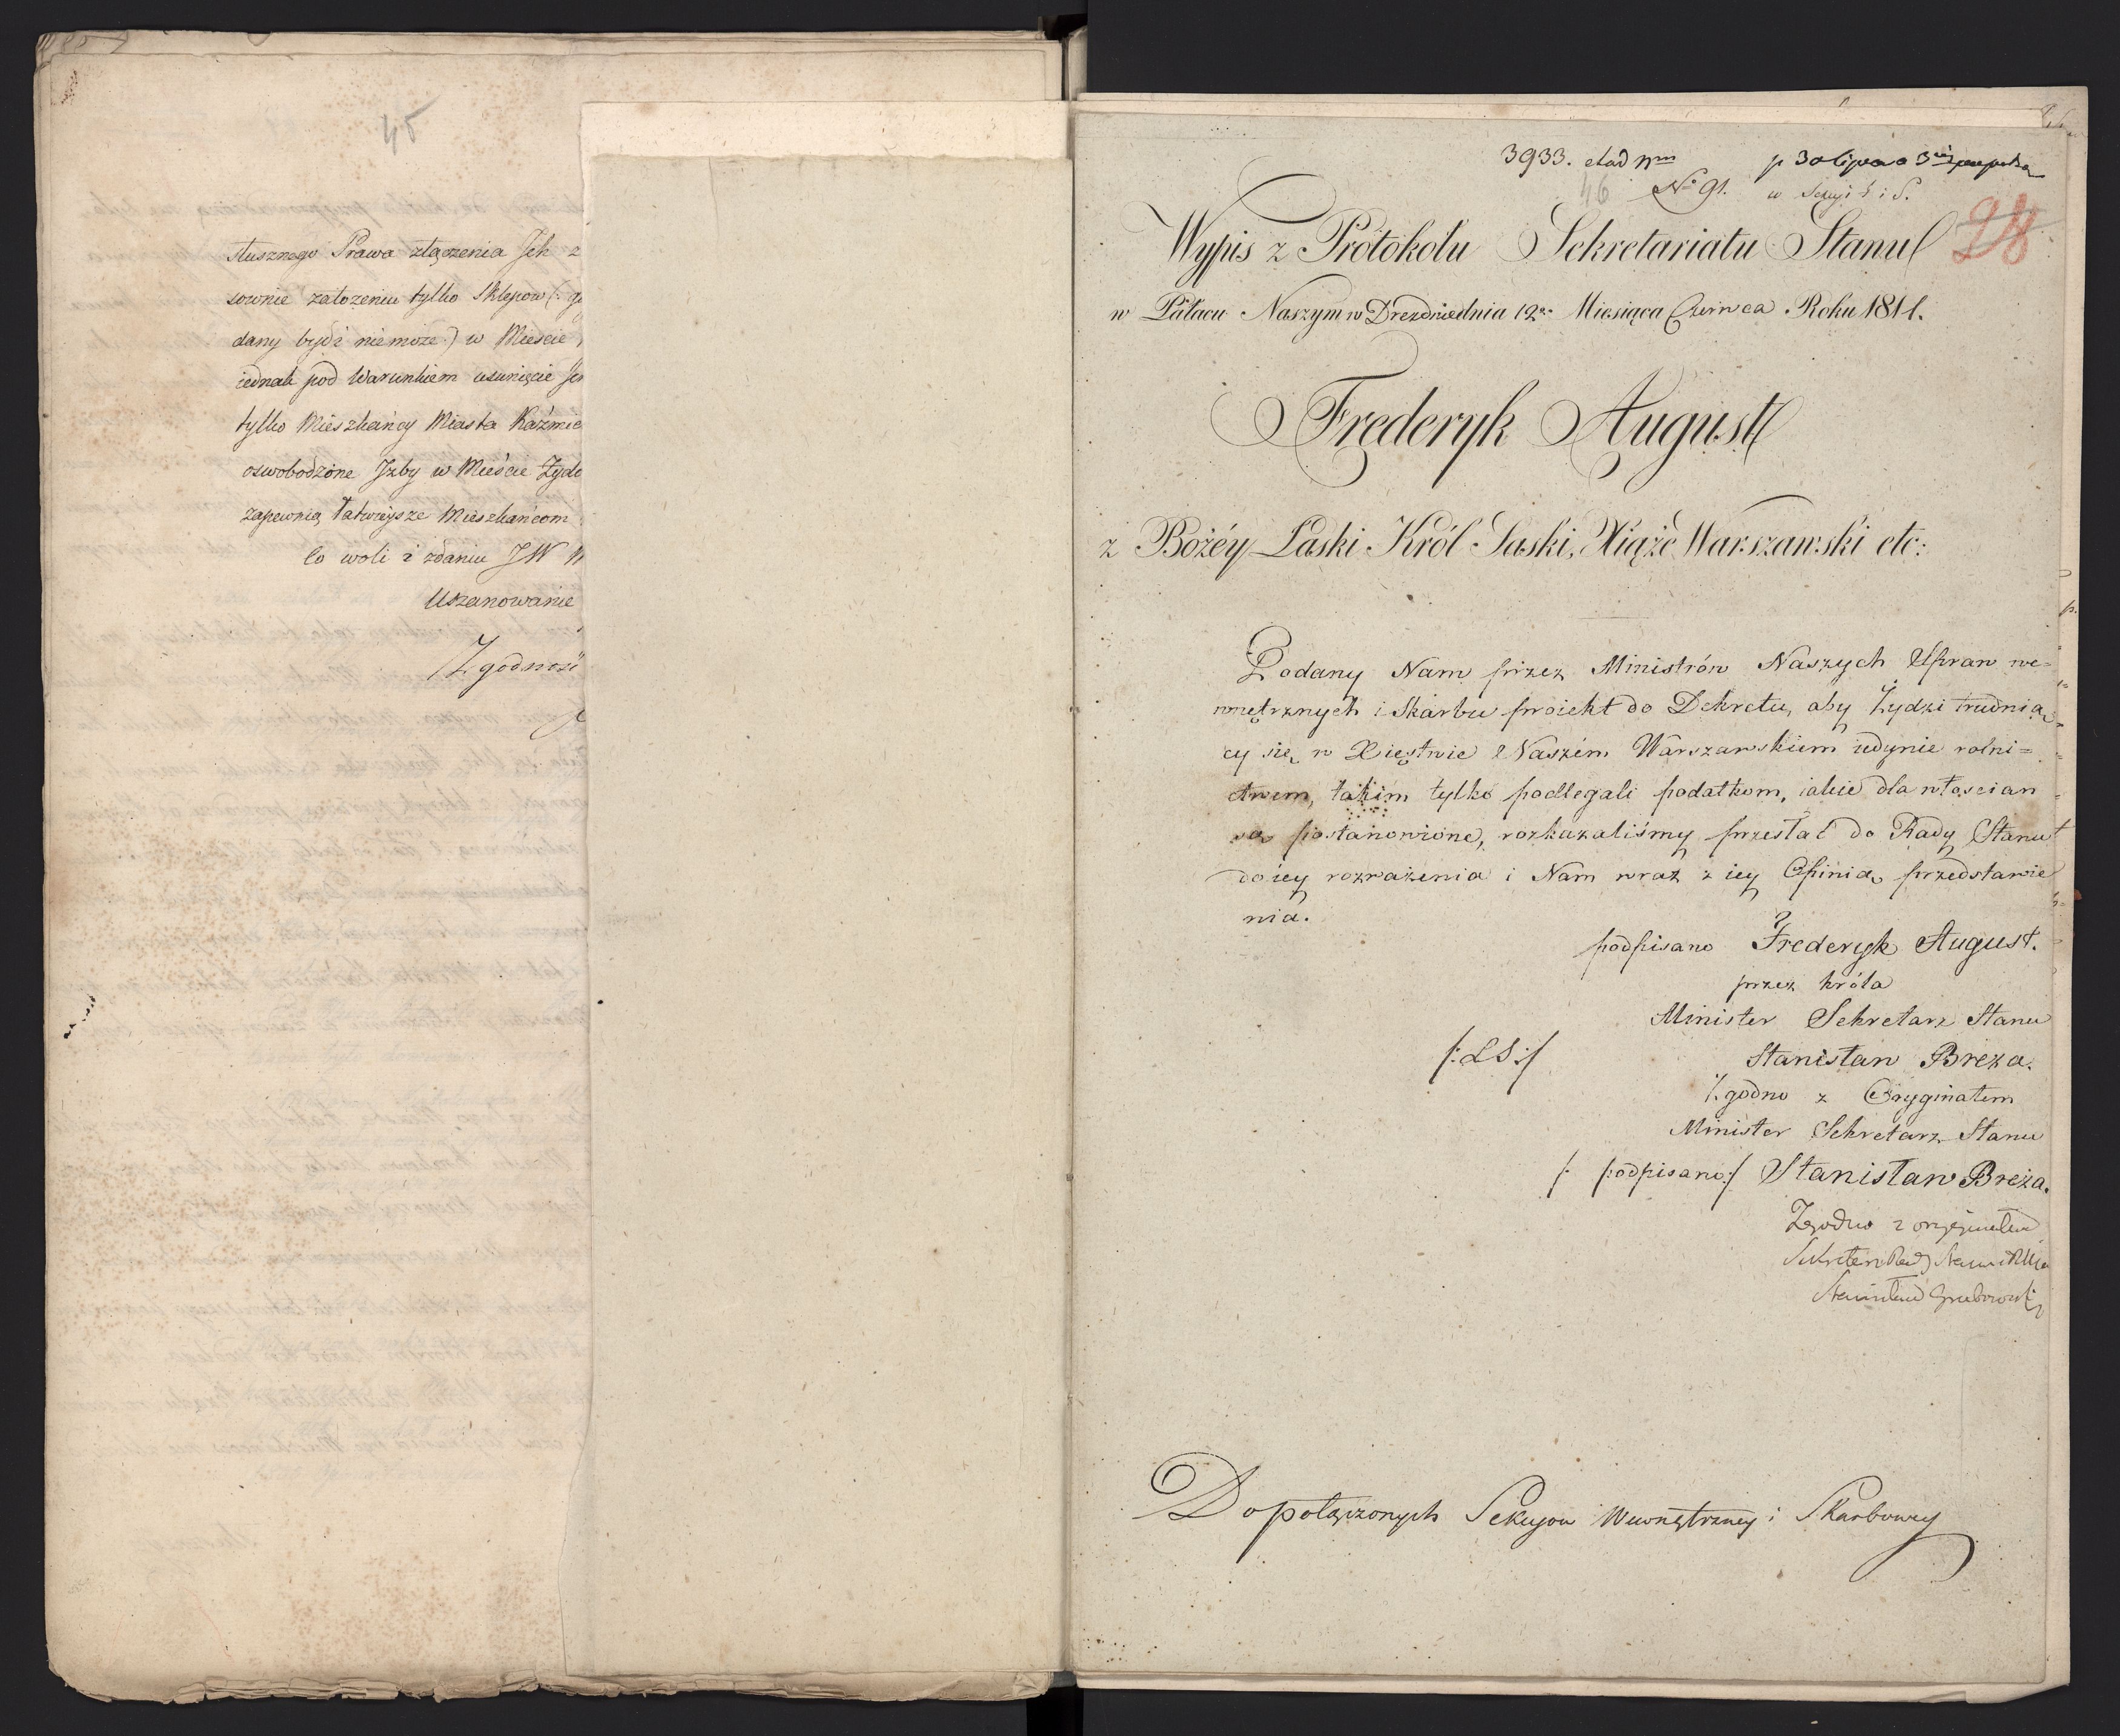 45
słusznego Prawa złączenia Ich z
sownie założeniu tylko Sklepow (: g
dany bydź niemoże :) w Mieście
iednak pod Warunkiem usunięcie
tylko Mieszkańcy Miasta Kaźmie
oswobodzone Izby w Mieście Żydo
zapewnią łatwieysze Mieszkańcom
Co woli i zdaniu JW
Uszanowanie
Zgodność
3933. et ad Nm
46 No 91. w Sekcyi i S.
28
Wypis z Protokołu Sekretariatu Stanu
w Pałacu Naszym w Dreźnie dnia 12o Miesiąca Czerwca Roku 1811.
Frederyk August
z Bożéy Łaski Król Saski, Xiążę Warszawski etc:
Podany Nam przez Ministrów Naszych Spraw we-
wnętrznych i Skarbu proiekt do Dekretu, aby Żydzi trudnią-
cy się w Xięstwie Naszém Warszawskiem iedynie rolni=
ctwem, takim tylko podlegali podatkom, iakie dla włościan
są postanowione, rozkazaliśmy przesłać do Rady Stanu
do iey rozważenia i Nam wraz z iey Opinią przedstawie
nia.
podpisano Frederyk August.
przez króla
Minister Sekretarz Stanu
/: LS :/ Stanisław Breza.
Zgodno z Oryginałem
Minister Sekretarz Stanu
/: podpisano :/ Stanisław Breza.
Zgodno z oryginałem
Sekretarz Rady Stanu
Stanisław Grabowski
Do połączonych Sekcyow Wewnętrzney i Skarbowey